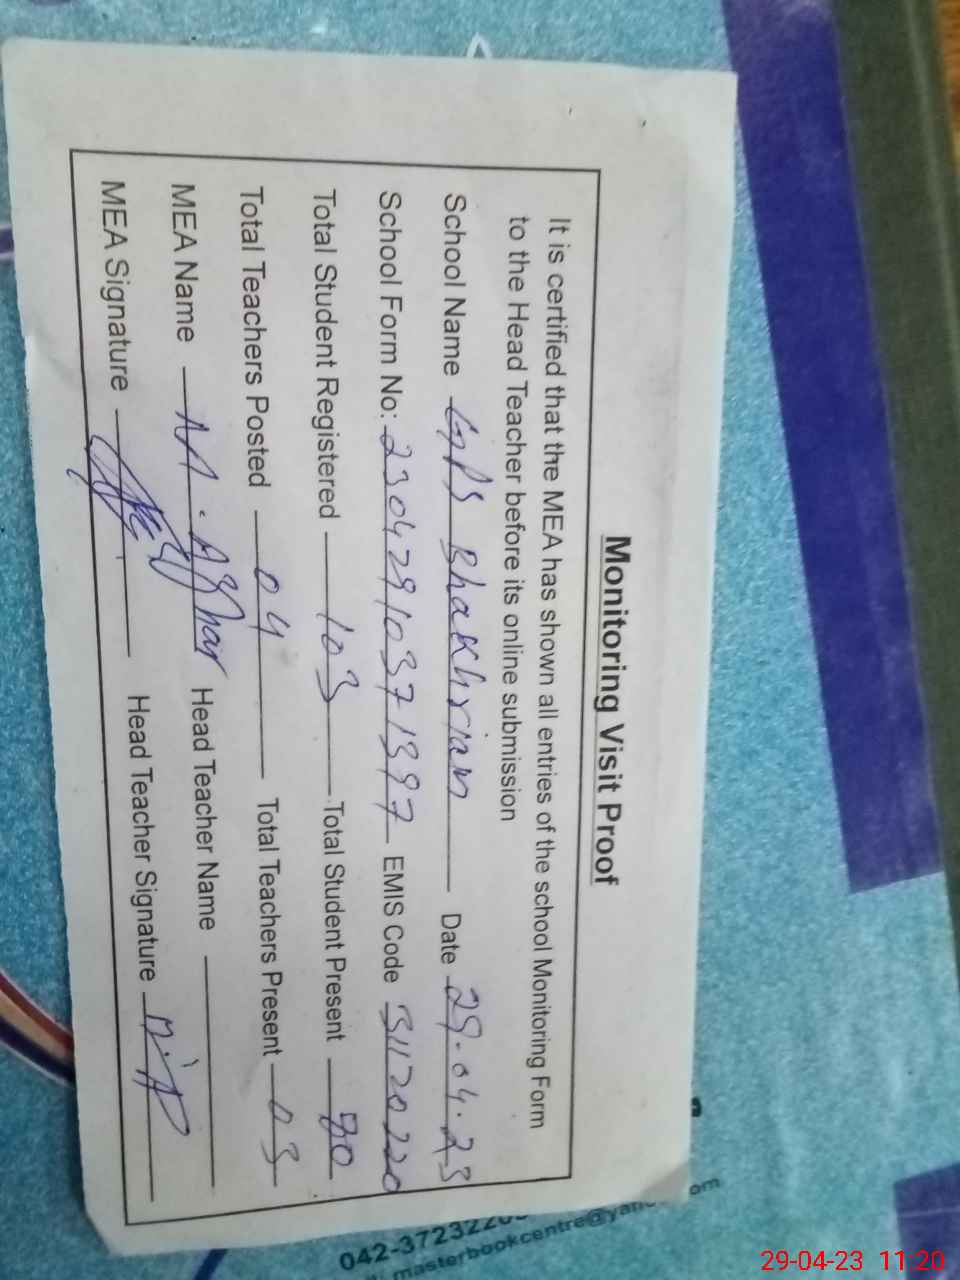 Monitoring Visit Proof
It is certified that the MEA has shown all entries of the school Monitoring Form
to the Head Teacher before its online submission
School Name GPS Bhakhrian Date 29.04.23
School Form No: 23042910371397 EMIS Code 31120220
Total Student Registered 103 Total Student Present 70
Total Teachers Posted 04 Total Teachers Present 03
MEA Name M. Azhar Head Teacher Name
MEA Signature Head Teacher Signature
042-372322
masterbookcentre@
29-04-23 11:20